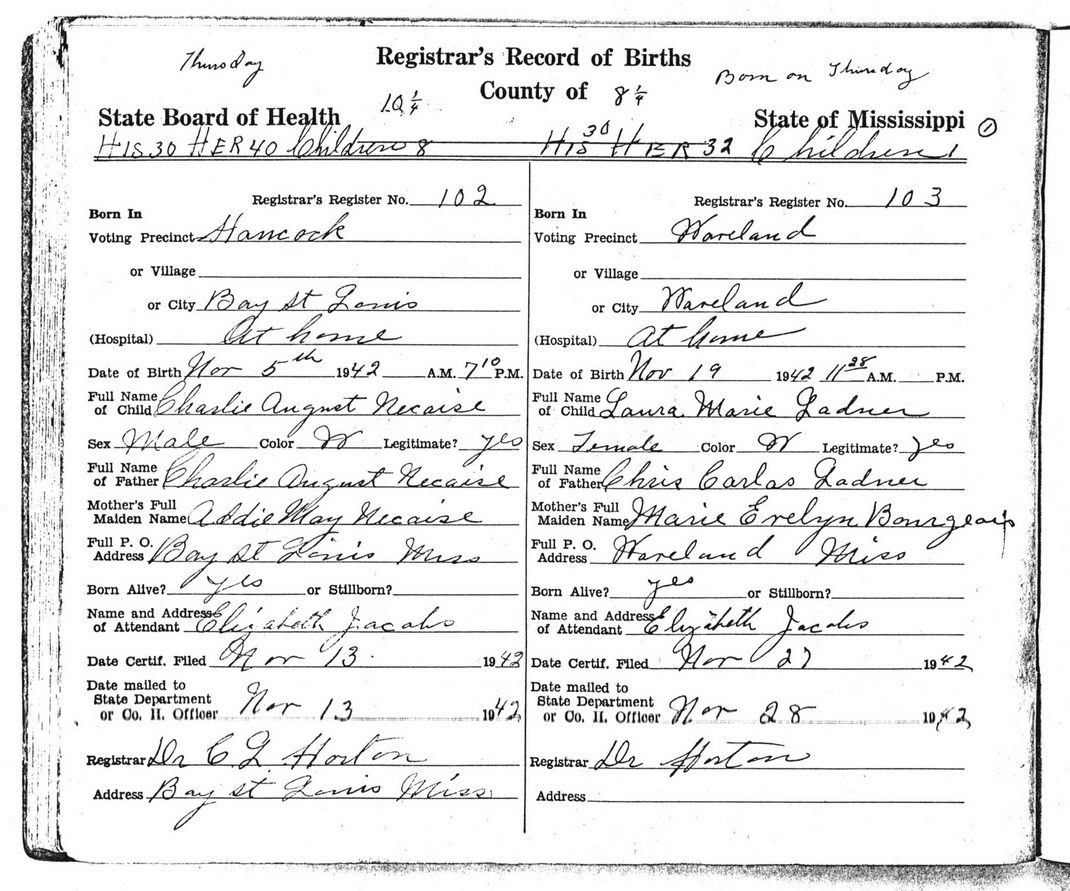 Thursday
Registrar's Record of Births
Born on Thursday
County of
10 1/4
8 1/4
State Board of Health
State of Mississippi
1
HIS 30 HER 40 Children 8
HIS 30 HER 32 Children 1
Registrar's Register No. 102
Born In
Voting Precinct Hancock
or Village
or City Bay St Louis
(Hospital) At home
Date of Birth Nov 5th 1942 A.M. 7 10 P.M.
Full Name
of Child Charlie August Necaise
Sex Male Color W Legitimate? yes
Full Name
of Father Charlie August Necaise
Mother's Full
Maiden Name Addie May Necaise
Full P. O.
Address Bay St Louis Miss
Born Alive? yes or Stillborn?
Name and Address
of Attendant Elizabeth Jacobs
Date Certif. Filed Nov 13. 1942
Date mailed to
State Department
or Co. H. Officer Nov 13 1942
Registrar Dr C L Horton
Address Bay St Louis Miss
Registrar's Register No. 103
Born In
Voting Precinct Waveland
or Village
or City Waveland
(Hospital) At home
Date of Birth Nov 19 1942 11 28 A.M. P.M.
Full Name
of Child Laura Marie Ladner
Sex Female Color W Legitimate? yes
Full Name
of Father Chris Carlas Ladner
Mother's Full
Maiden Name Marie Evelyn Bourgeois
Full P. O.
Address Waveland Miss
Born Alive? yes or Stillborn?
Name and Address
of Attendant Elizabeth Jacobs
Date Certif. Filed Nov 27 1942
Date mailed to
State Department
or Co. H. Officer Nov 28 1942
Registrar Dr Horton
Address